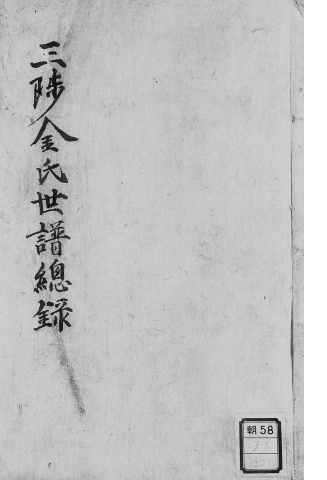 三陟金氏世譜總錄
朝58